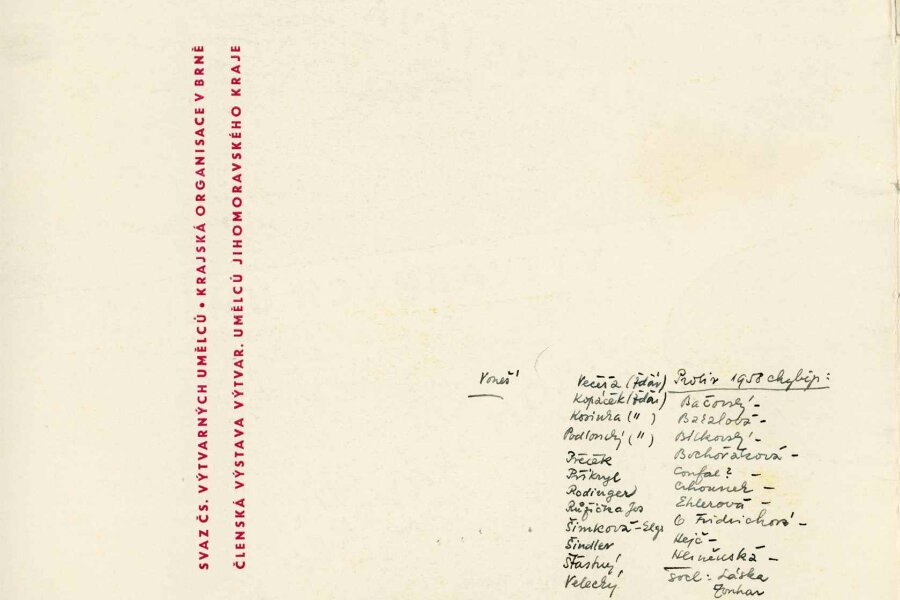 SVAZ ČS. VÝTVARNÝCH UMĚLCŮ • KRAJSKÁ ORGANISACE V BRNĚ
ČLENSKÁ VÝSTAVA VÝTVAR. UMĚLCŮ JIHOMORAVSKÉHO KRAJE
Voneš
Večeřa (Žďár)
Kopáček (Žďár)
Kosinka (")
Podlouský (")
Přeček
Přikryl
Rodinger
Růžička Jos
Šimková-Elgr
Šindler
Šťastný
Velecký
Proti 1958 chybějí:
Bačovský -
Bařalová -
Bílkovský -
Bochořáková -
Confal? -
Crhounek -
Ehlerová -
O Fridrichová -
Hejč -
Nesněnská -
socl: Láska
Zonhar